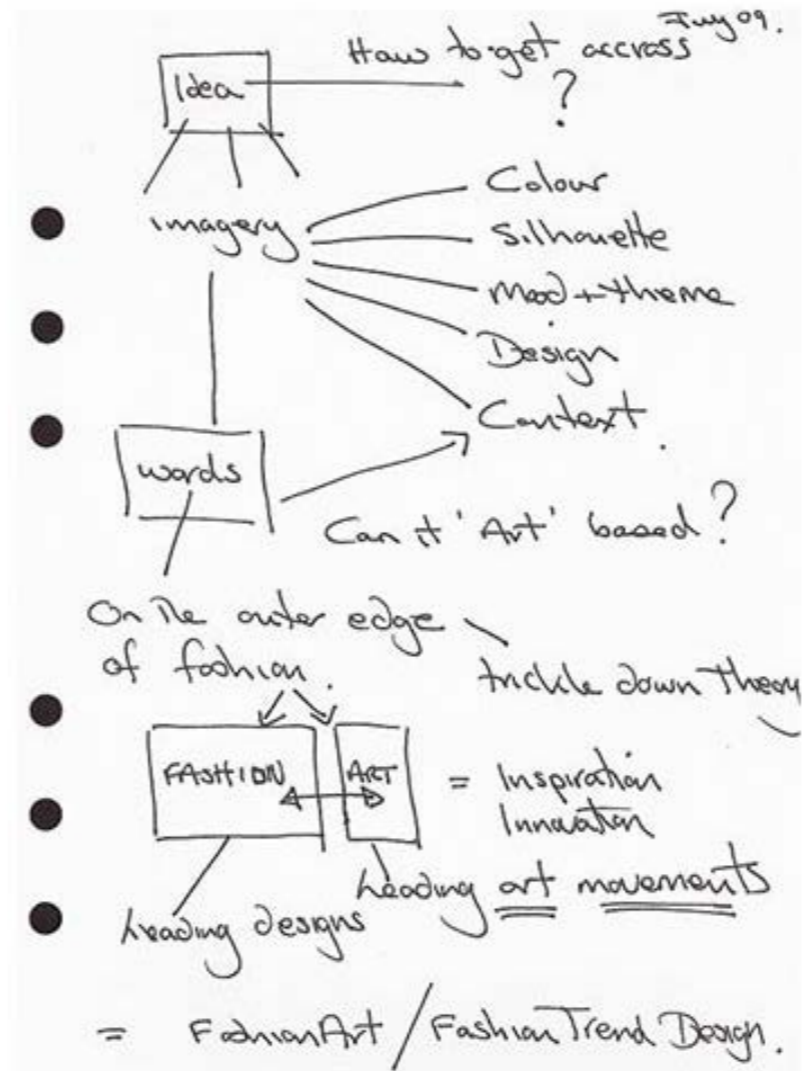 July 09.
How to get accross
Idea
?
imagery
Colour
Silhouette
Mood + theme
Design
Context.
words
Can it 'Art' based?
On the outer edge
of fashion.
trickle down theory
FASHION
ART
= Inspiration
Innovation
leading art movements
leading designs
= FashionArt / Fashion Trend Design.